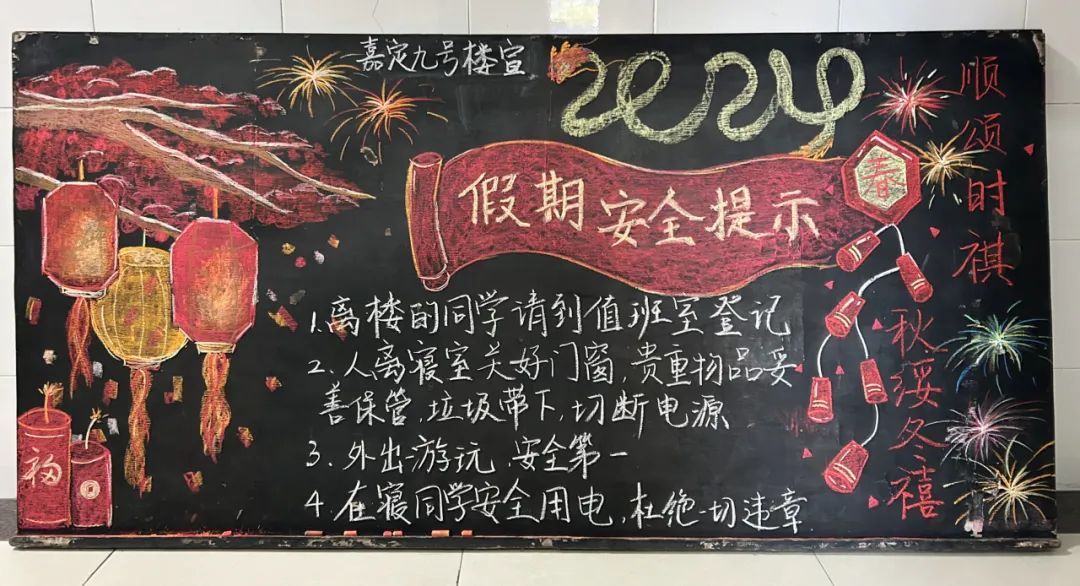 嘉定九号楼宣
2024
假期安全提示
春
1.离楼的同学请到值班室登记
2.人离寝室关好门窗,贵重物品妥
善保管,垃圾带下,切断电源
3.外出游玩,安全第一
4.在寝同学安全用电,杜绝一切违章
顺颂时祺
秋绥冬禧
福